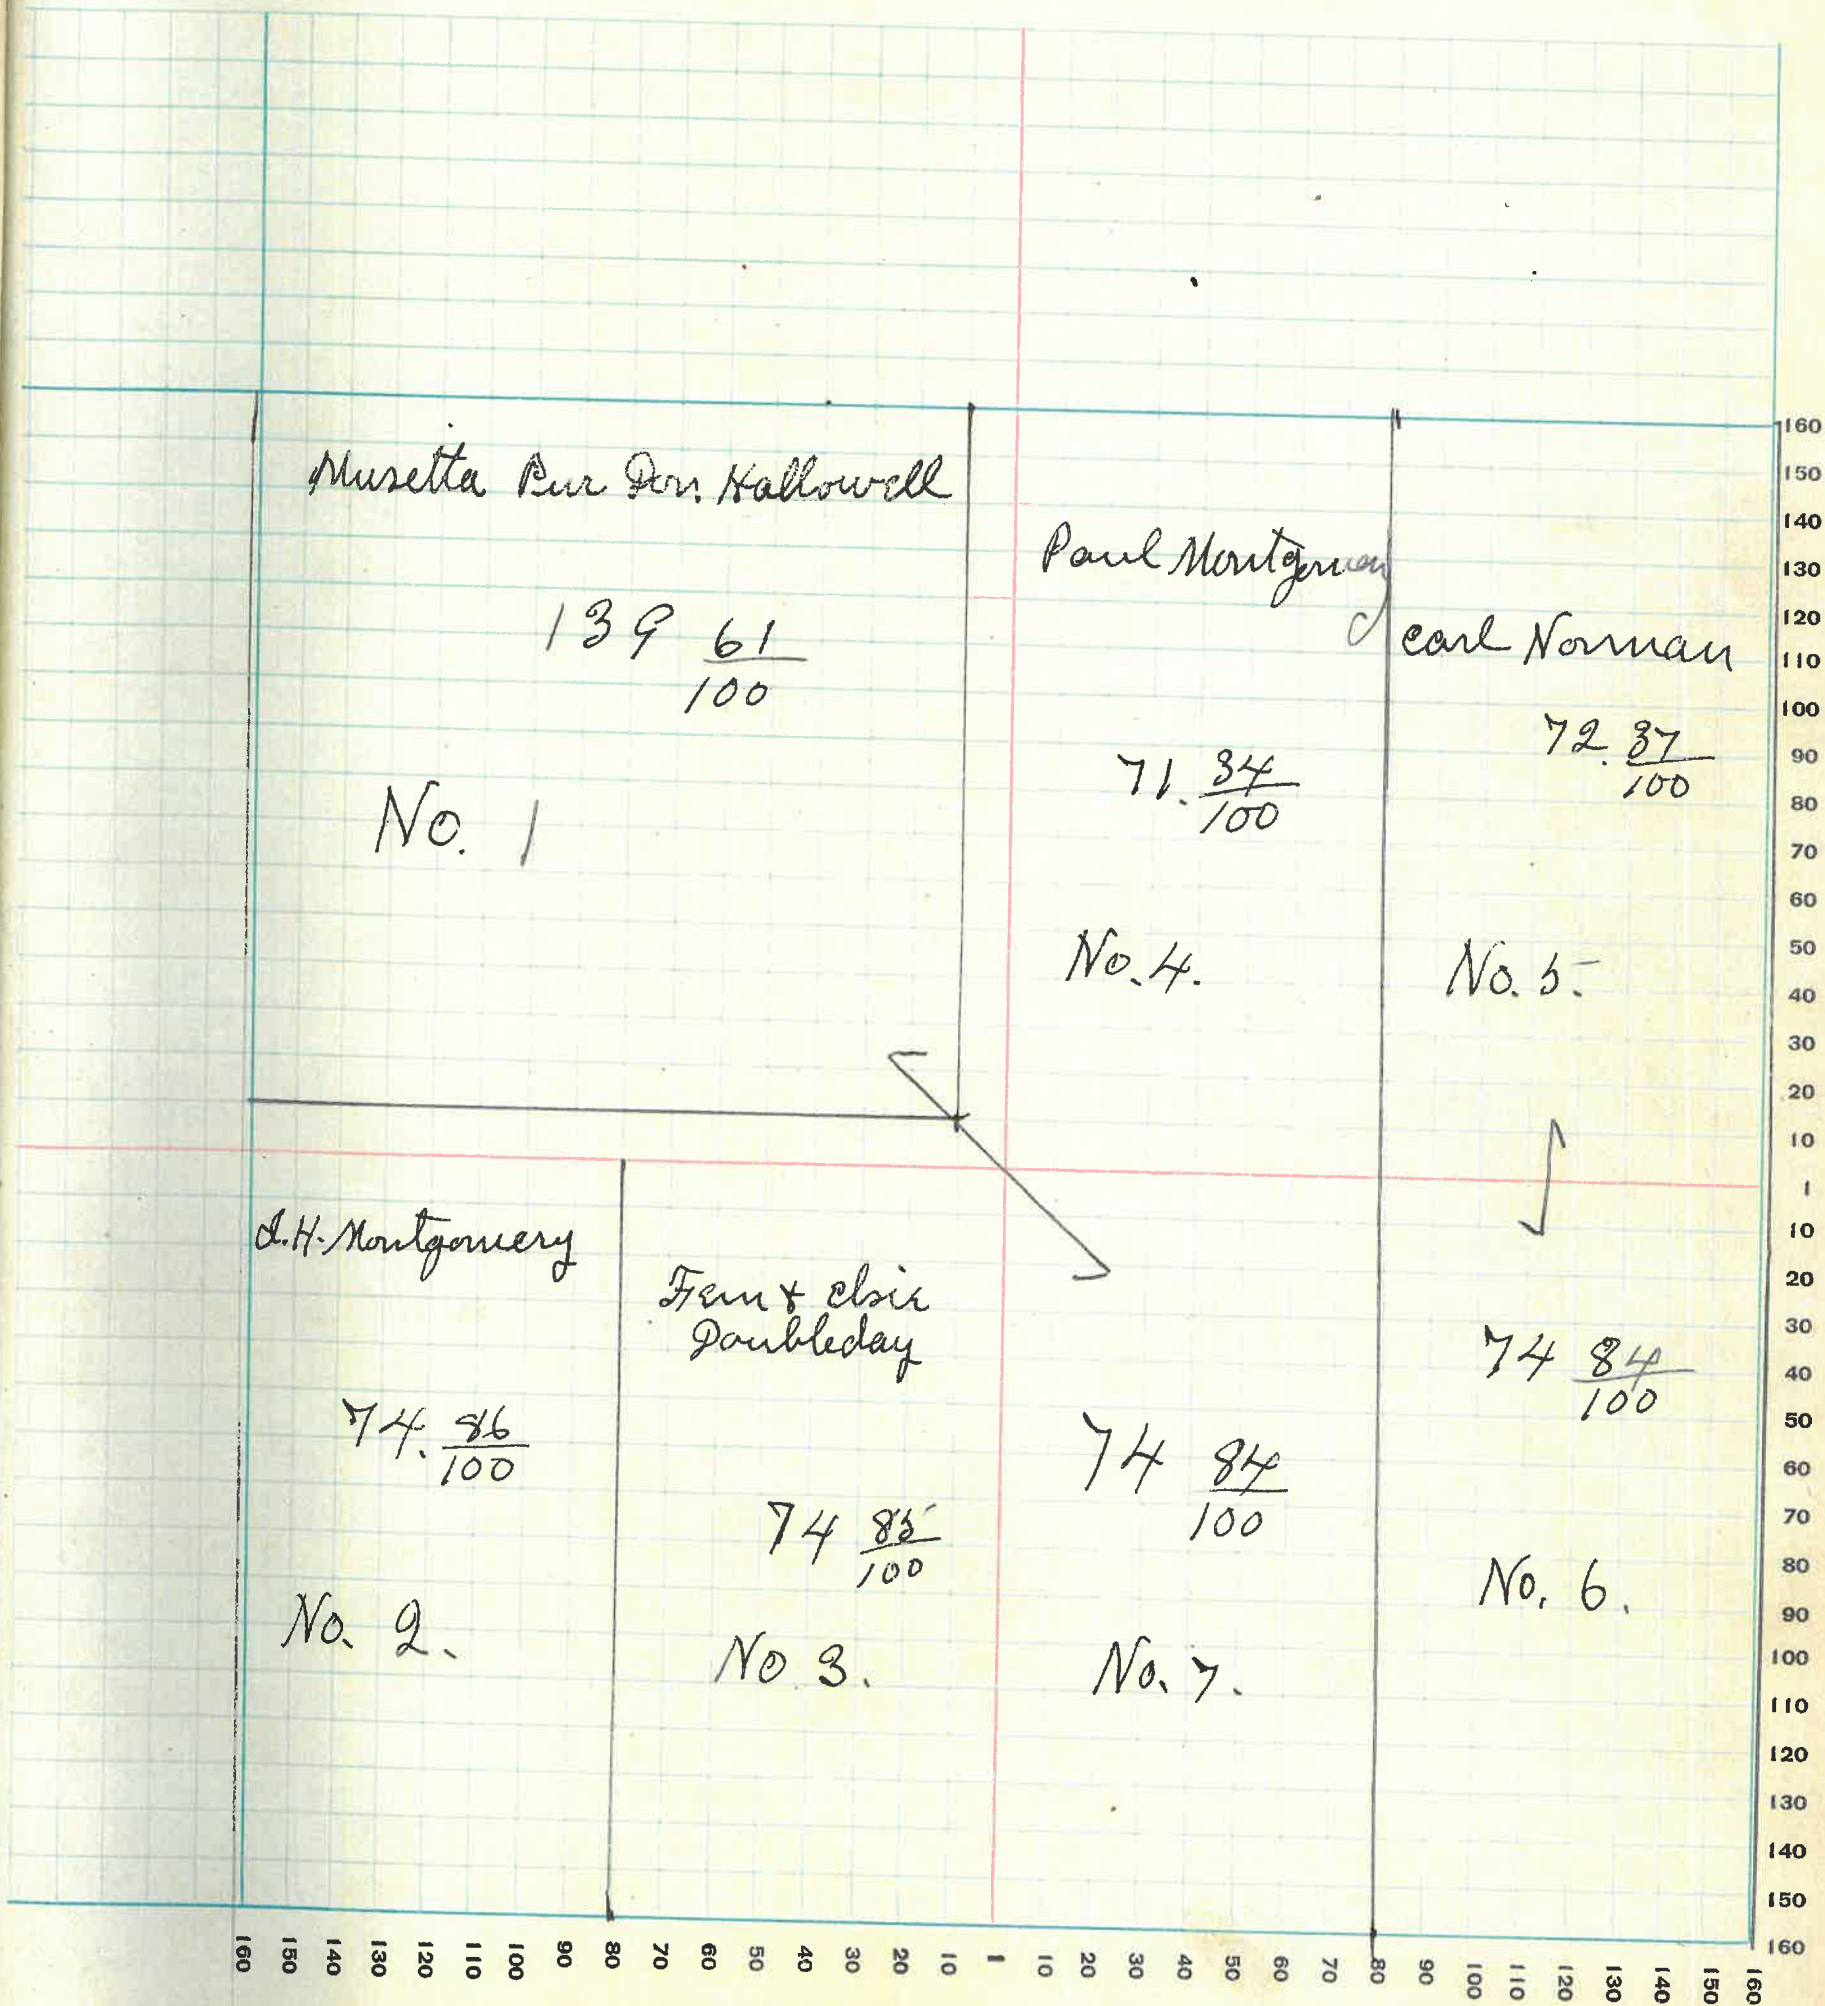 Musetta Pur Don. Hallowell
139 61/100
No. 1
Paul Montgomery
71. 34/100
No. 4.
Carl Norman
72. 37/100
No. 5.
Montgomery
74. 86/100
No. 2.
Fern & Elsie
Doubleday
74 85/100
No 3.
74 84/100
No. 7.
74 84/100
No. 6.
160
150
140
130
120
110
100
90
80
70
60
50
40
30
20
10
1
10
20
30
40
50
60
70
80
90
100
110
120
130
140
150
160
160 150 140 130 120 110 100 90 80 70 60 50 40 30 20 10 1 10 20 30 40 50 60 70 80 90 100 110 120 130 140 150 160